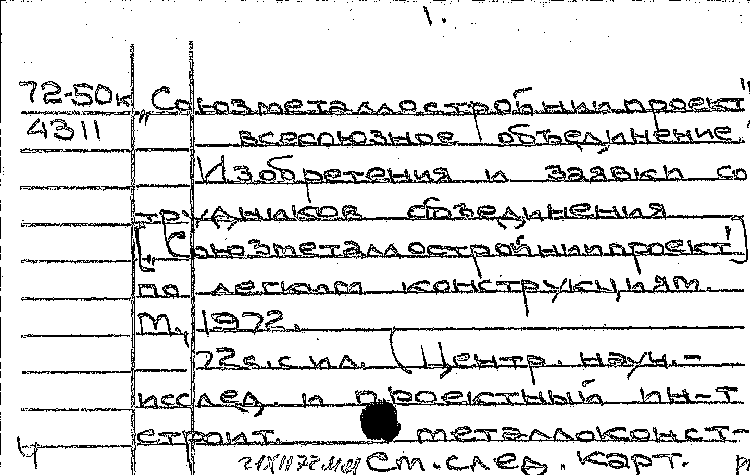 1.
72-50к "Союзметаллостройниипроект"
4311 всесоюзное объединение.
Изобретения и заявки со
трудников объединения
["Союзметаллостройниипроект"]
по легким конструкциям.
М., 1972.
72 с. с ил. (Центр. науч.-
исслед. и проектный ин-т
строит. металлоконст-
4 См. след. карт.